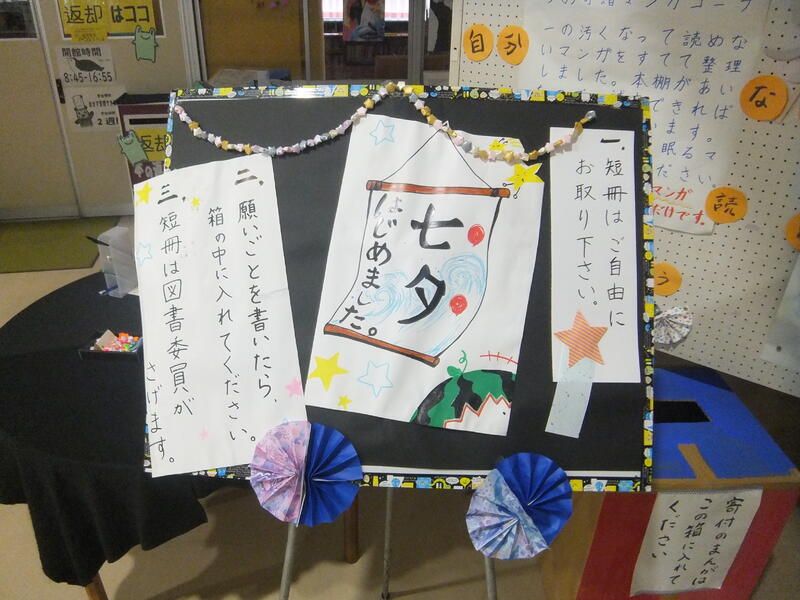 七夕
はじめました。
一、短冊はご自由に
お取り下さい。
二、願いごとを書いたら、
箱の中に入れてください。
三、短冊は図書委員が
さげます。
返却はココ
開館時間
8:45-16:55
返却
自分
な
読
う
の汚くなって読めな
いマンガをすてて整理
しました。本棚があい
できれば
ます。
眠るマ
ださい
マンガ
だけです
寄付のまんがは
この箱に入れて
ください